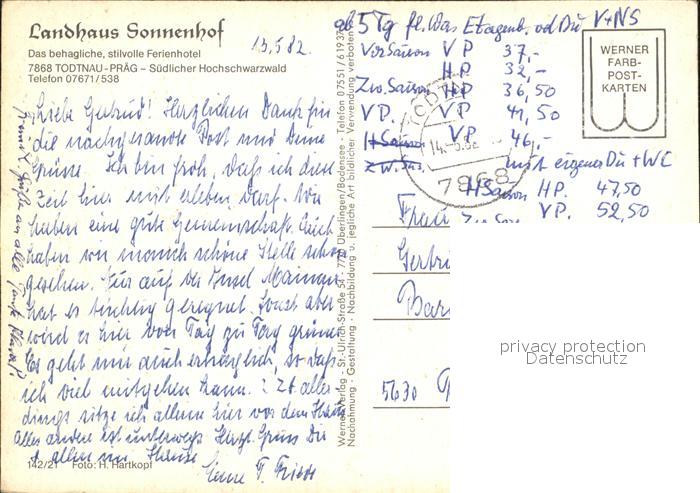 Landhaus Sonnenhof
Das behagliche, stilvolle Ferienhotel
7868 TODTNAU-PRÄG – Südlicher Hochschwarzwald
Telefon 07671/538
13.5.82.
Liebe Gertrud! Herzlichen Dank für
die nachgesandte Post und Deine
Grüsse. Ich bin froh, daß ich diese
Zeit hier mit erleben darf. Wir
haben eine gute Gemeinschaft. Auch
haben wir manch schöne Stelle schon
gesehen. Nur auf der Insel Mainau
hat es tüchtig geregnet. Sonst aber
wird es hier von Tag zu Tag grüner.
Es geht mir auch erträglich, so daß
ich viel mitgehen kann. Z. Zt. aller-
dings sitze ich allein hier vor dem Haus
alles andere ist unterwegs Herzl. Grüss Dir
+ allen im Hause
Deine T. Frieda
142/21 Foto: H. Hartkopf
Grüße an alle
Werner Verlag · St.-Ulrich-Straße 54 · 7770 Überlingen/Bodensee · Telefon 07551/61937
Nachahmung · Gestaltung · Nachbildung u. jegliche Art bildlicher Verwendung verboten
ab 5 Tg fl. Was Etagenb. od Du V+NS
Vor Saison VP 37,-
HP 32,-
Zw. Saison HP 36,50
VP. VP 41,50
H Saison VP 46,-
Zw. Sas. mit eigener Du + WC
H Saison HP. 47,50
Zw Sas VP. 52,50
WERNER
FARB-
POST-
KARTEN
14.-5.82
7868
Frau
Gertr
Bar
5630
privacy protection
Datenschutz